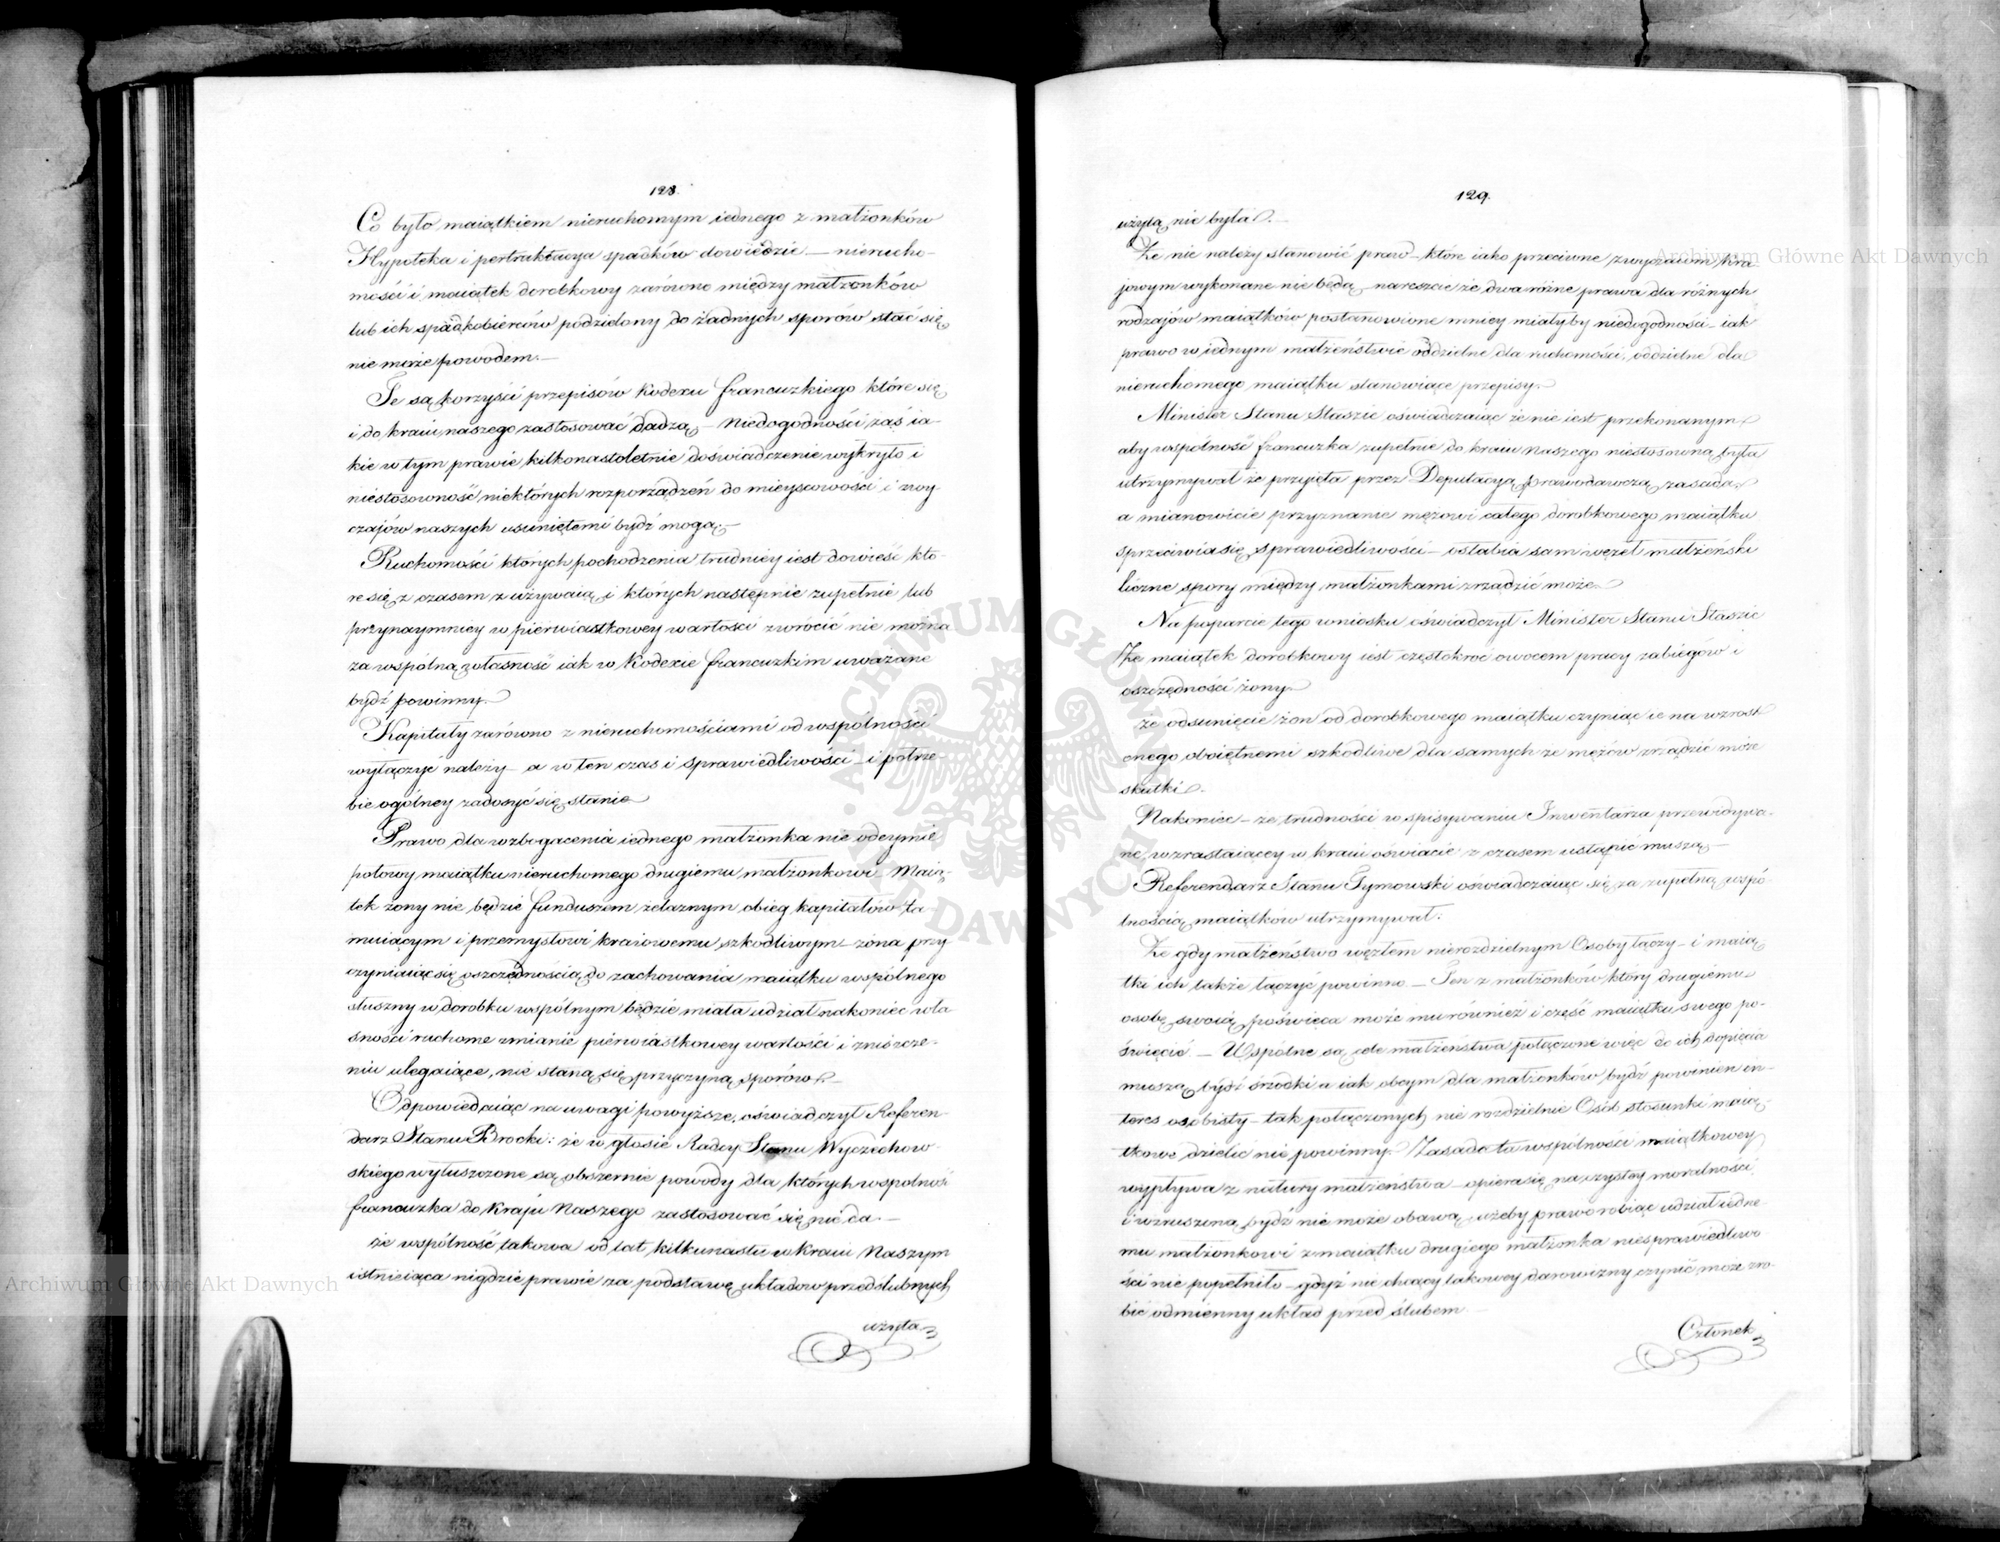 128.
Co było maiątkiem nieruchomym iednego z małżonków
Hypoteka i pertraktacya spadków dowiedzie — nierucho-
mości i maiątek dorobkowy zarówno między małżonków
lub ich spadkobierców podzielony do żadnych sporow stać się
nie może powodem.—
Te są korzyści przepisów Kodexu francuzkiego które się
i do kraiu naszego zastosować dadzą — Niedogodności zaś ia-
kie w tym prawie kilkonastoletnie doświadczenie wykryło i
niestosowność niektórych rozporządzeń do mieyscowości i zwy-
czajów naszych usuniętemi bydź mogą.—
Ruchomości których pochodzenia trudniey iest dowieść któ-
re się z czasem zużywaią i których następnie zupełnie lub
przynaymniey w pierwiastkowey wartości zwrócić nie można
za wspólną własność iak w Kodexie francuzkim uważane
bydź powinny.
Kapitały zarówno z nieruchomościami od wspólności
wyłączyć należy — a w ten czas i sprawiedliwości — i potrze-
bie ogólney zadosyć się stanie
Prawo dla wzbogacenia iednego małżonka nie odeymie
połowy maiątku nieruchomego drugiemu małżonkowi — Maią-
tek żony nie będzie funduszem żelaznym obieg kapitałów ta-
muiącym i przemysłowi kraiowemu szkodliwym — żona przy
czyniaiąc się oszczędnością do zachowania maiątku wspólnego
słuszny w dorobku wspólnym będzie miała udział nakoniec wła-
sności ruchome zmianie pierwiastkowey wartości i zniszcze-
niu ulegaiące, nie staną się przyczyną sporów.—
Odpowiedaiąc na uwagi powyższe, oświadczył Referen-
darz Stanu Brocki: że w głosie Radcy Stanu Wyczechow-
skiego wyłuszczone są obszernie powody dla których wspólność
francuzka do kraju Naszego zastosować się nie da.—
że wspólność takowa od lat kilkunastu w kraiu Naszym
istnieiąca nigdzie prawie za podstawę układow przedślubnych
użyta
129.
użytą nie była.—
Że nie należy stanowić praw — które iako przeciwne zwyczaiom kra-
jowym wykonane nie będą — nareszcie że dwa różne prawa dla różnych
rodzajów maiątków postanowione mniey miałyby niedogodności — iak
prawo w iednym małżeństwie oddzielne dla ruchomości, oddzielne dla
nieruchomego maiątku stanowiące przepisy.
Minister Stanu Staszic oświadczaiąc że nie iest przekonanym
aby wspólność francuzka zupełnie do kraiu Naszego niestosowną była
utrzymywał że przyięta przez Deputacyą prawodawczą zasada
a mianowicie przyznanie mężowi całego dorobkowego maiątku
sprzeciwia się sprawiedliwości — osłabia sam węzeł małżeński
liczne spory między małżonkami zrządzić może.
Na poparcie tego wniosku oświadczył Minister Stanu Staszic
Że maiątek dorobkowy iest częstokroć owocem pracy zabiegów i
oszczędności żony.
że odsunięcie żon od dorobkowego maiątku czyniąc ie na wzrost
onego oboiętnemi szkodliwe dla samych że mężów zrządzić może
skutki.
Nakoniec — że trudności w spisywaniu Inwentarza przewidywa-
ne, wzrastaiącey w kraiu oświacie z czasem ustąpić muszą —
Referendarz Stanu Tymowski oświadczaiąc się za zupełną wspó-
lnością maiątków utrzymywał:
Że gdy małżeństwo węzłem nierozdzielnym Osoby łączy — i maią
tki ich także łączyć powinno — Ten z małżonków który drugiemu
osobę swoią poświęca może mu również i część maiątku swego po-
święcić — Wspólne są cele małżeństwa połączone więc do ich dopięcia
muszą bydź środki a iak obcym dla małżonków bydź powinien in-
teres osobisty — tak połączonych nie rozdzielnie Osób stosunki maią-
tkowe dzielić nie powinny. Zasada ta wspólności maiątkowey
wypływa z natury małżeństwa — opiera się na czystey moralności
i wzruszoną bydź nie może obawą, ażeby prawo robiąc udział iedne-
mu małżonkowi z maiątku drugiego małżonka niesprawiedliwo
ści nie popełniło — gdyż nie chcący takowey darowizny czynić, może zro-
bić odmienny układ przed ślubem —
Członek
Archiwum Główne Akt Dawnych
Archiwum Główne Akt Dawnych
ARCHIWUM GŁÓWNE AKT DAWNYCH